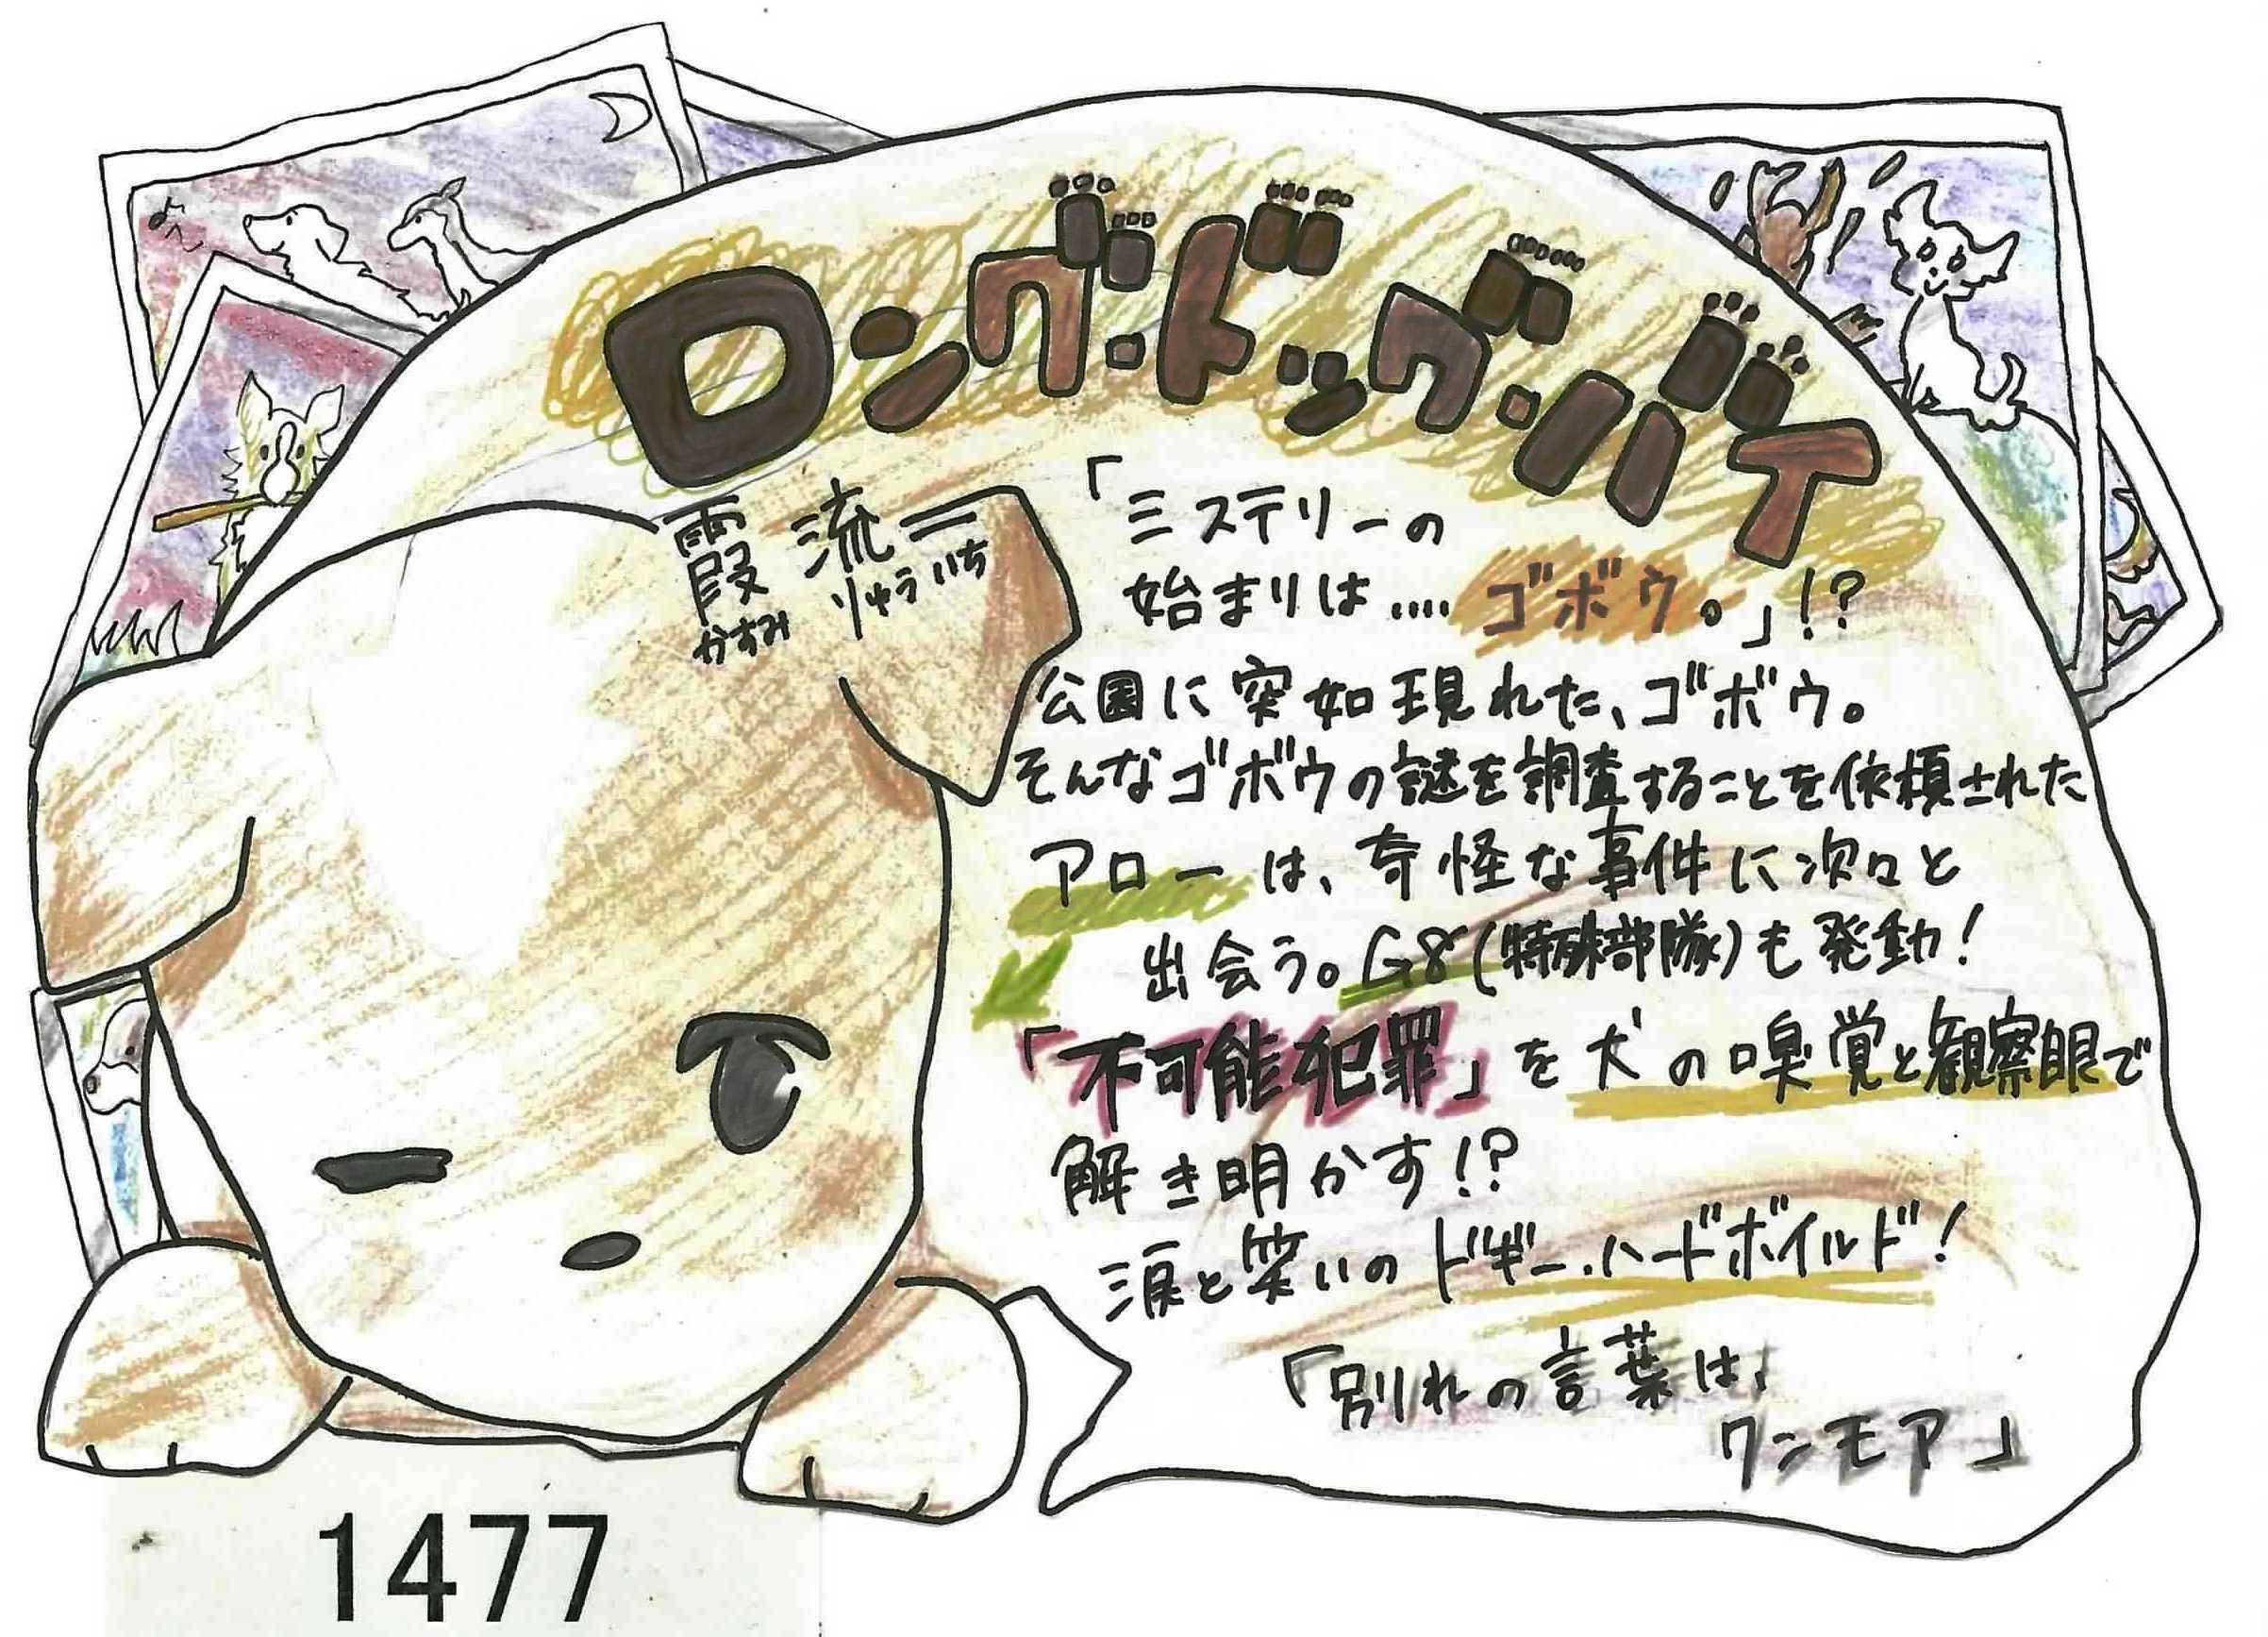 ロング・ドッグ・バイ
霞 流一
かすみ りゅういち
「ミステリーの
始まりは....ゴボウ。」!?
公園に突如現れた、ゴボウ。
そんなゴボウの謎を調査することを依頼された
アローは、奇怪な事件に次々と
出会う。G8(特殊部隊)も発動!
「不可能犯罪」を犬の嗅覚と観察眼で
解き明かす!?
涙と笑いのドギー・ハードボイルド!
「別れの言葉は、
ワンモア」
1477